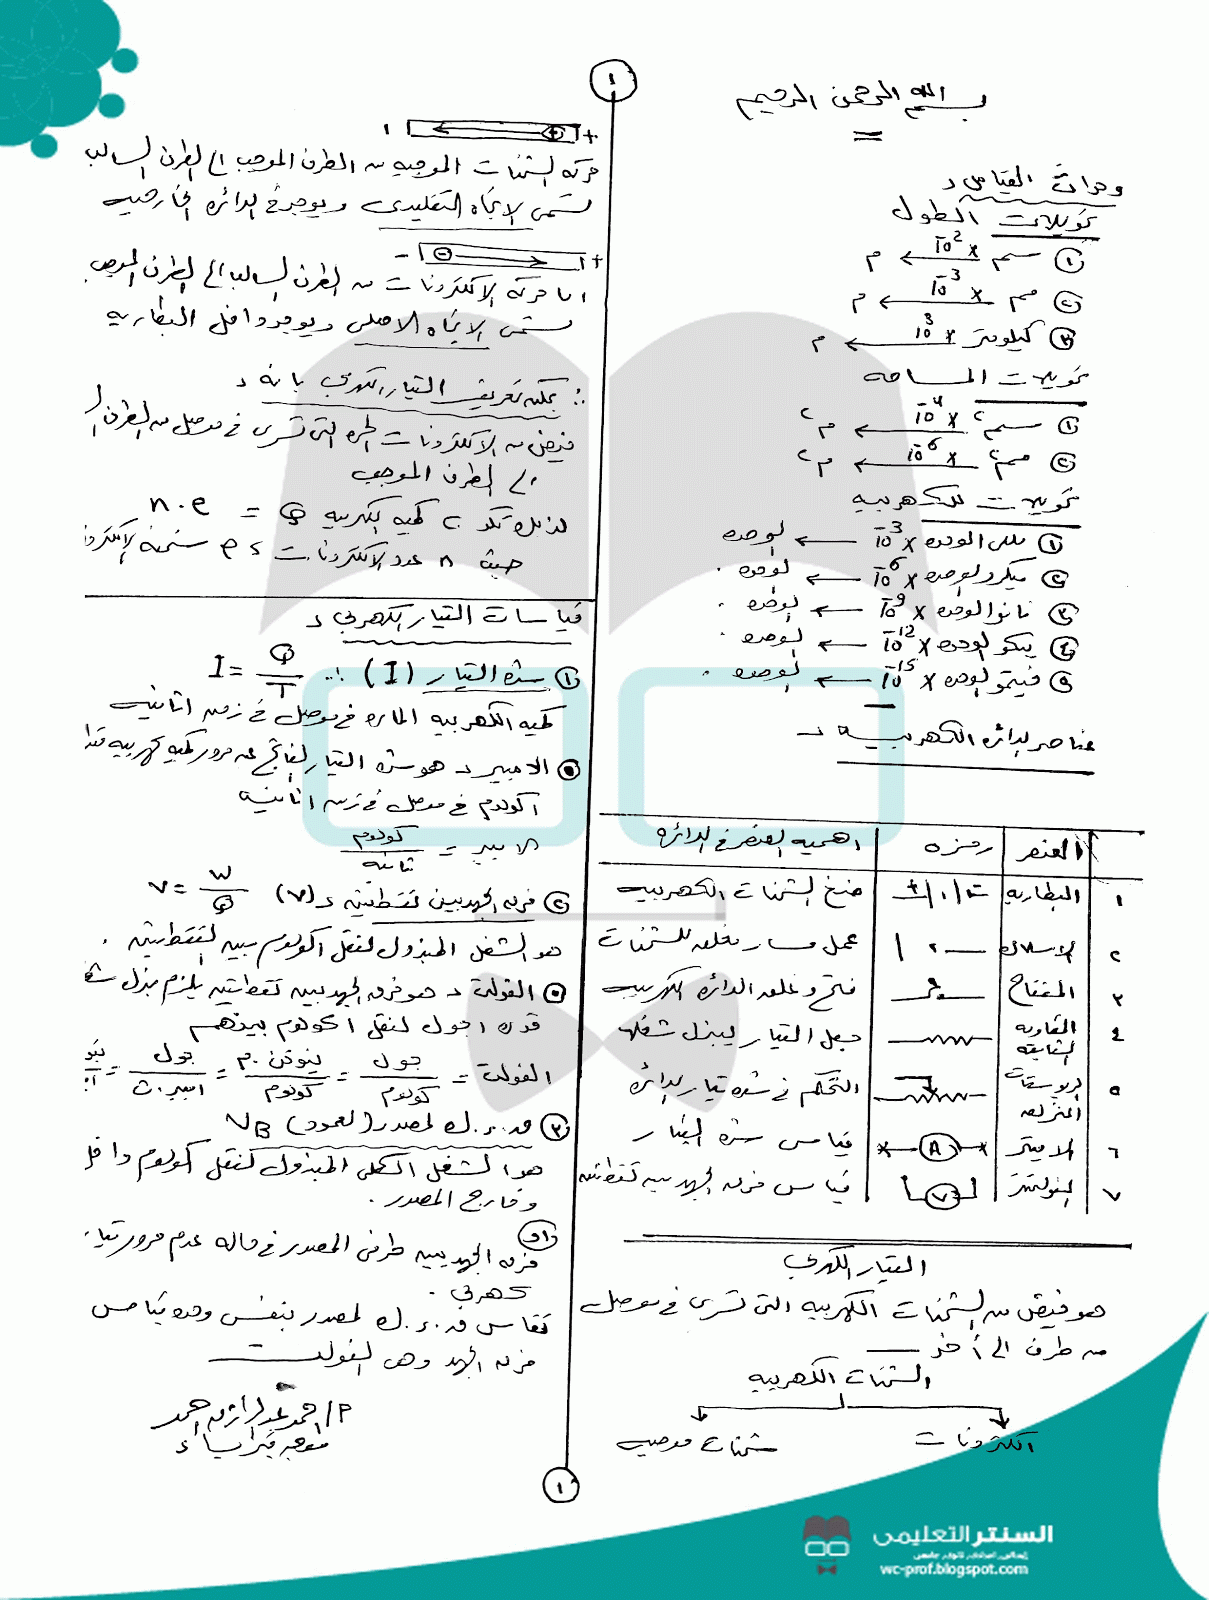 ١
بسم الله الرحمن الرحيم
وحدات القياس
تحويلات الطول
① سم × 10⁻² ← م
② مم × 10⁻³ ← م
③ كيلومتر × 10³ ← م
تحويلات المساحه
① سم٢ × 10⁻⁴ ← م٢
② مم٢ × 10⁻⁶ ← م٢
تحويلات للكهربيه
① مللى الوحده × 10⁻³ ← الوحده
② ميكرو الوحده × 10⁻⁶ ← الوحده
③ نانو الوحده × 10⁻⁹ ← الوحده
④ بيكو الوحده × 10⁻¹² ← الوحده
⑤ فيمتو الوحده × 10⁻¹⁵ ← الوحده
عناصر الدائره الكهربيه
العنصر رمزه اهميه العنصر فى الدائره
١ البطاريه ضخ الشحنات الكهربيه
٢ الاسلاك عمل مسار مغلق للشحنات
٣ المفتاح فتح وغلق الدائره الكهربيه
٤ المقاومه الثابته جعل التيار يبذل شغلا
٥ الريوستات المنزلقه التحكم فى شدة تيار الدائره
٦ الاميتر A قياس شدة التيار
٧ الفولتميتر V قياس فرق الجهد بين نقطتين
التيار الكهربي
هو فيض من الشحنات الكهربيه التى تسرى فى موصل
من طرف الى آخر
الشحنات الكهربيه
الكترونات شحنات موجبه
+ -
حركة الشحنات الموجبه من الطرف الموجب الى الطرف السالب
تسمى الاتجاه التقليدى ويوجد فى الدائره الخارجيه
+ -
اما حركة الالكترونات من الطرف السالب الى الطرف الموجب
تسمى الاتجاه الاصلى ويوجد داخل البطاريه
∴ يمكن تعريف التيار الكهربي بانه
فيض من الالكترونات الحره التى تسرى فى موصل من الطرف
الى الطرف الموجب
لذلك تكون كميه الكهربيه Q = n.e
حيث n عدد الالكترونات ، e شحنة الالكترون
قياسات التيار الكهربي
① شدة التيار (I) ∴ I = Q/T
كميه الكهربيه الماره فى موصل فى زمن اثانيه
● الامبير هو شدة التيار الناتج عن مرور كميه كهربيه قدرها
اكولوم فى موصل فى زمن اثانيه
الامبير = كولوم/ثانيه
② فرق الجهد بين نقطتين (V) V = W/Q
هو الشغل المبذول لنقل اكولوم بين النقطتين .
● الفولت هو فرق الجهد بين نقطتين يلزم بذل شغل
قدره اجول لنقل اكولوم بينهم
الفولت = جول/كولوم = نيوتن.م/كولوم = جول/امبير.ث =
③ ق.د.ك لمصدر (العمود) V_B
هو الشغل الكلى المبذول لنقل كولوم داخل
وخارج المصدر .
(او)
فرق الجهد بين طرفى المصدر فى حاله عدم مرور تيار
كهربي .
تقاس ق.د.ك لمصدر بنفس وحده قياس
فرق الجهد وهى الفولت
م/ احمد عبدالرازق احمد
موجه فيزياء
١
السنتر التعليمى
إبتدائى، اعدادى، ثانوى، جامعى
wc-prof.blogspot.com